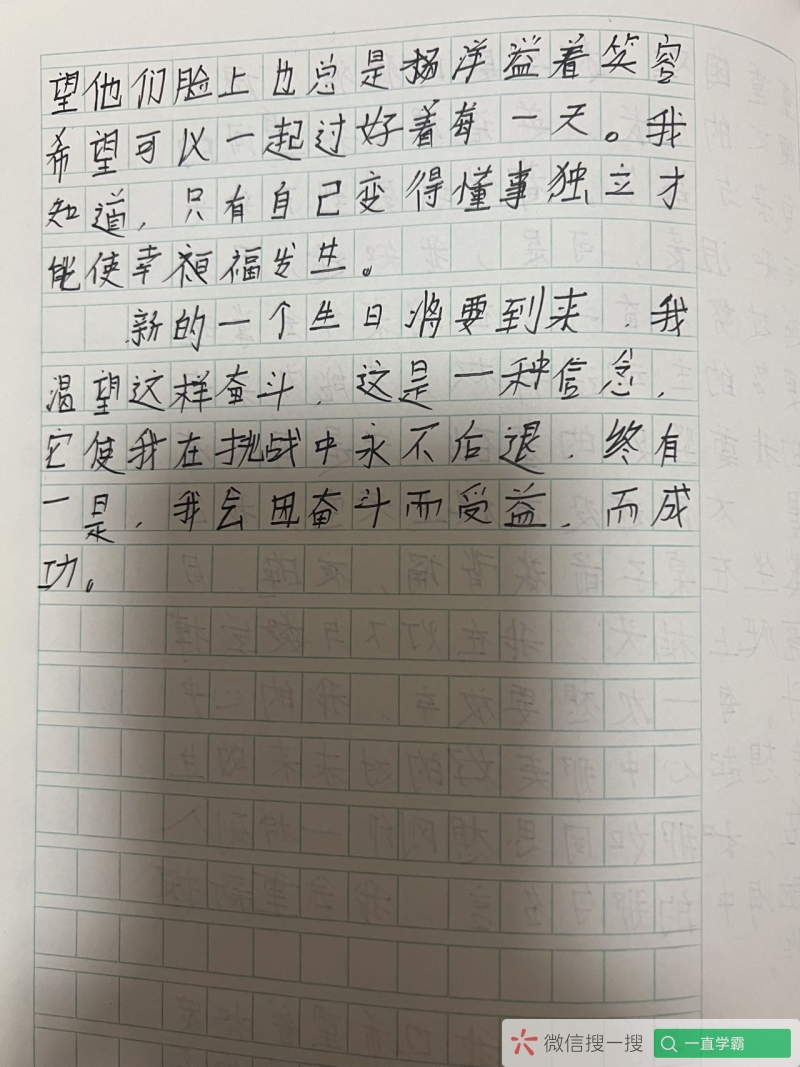 望他们脸上也总是扬洋溢着笑容
希望可以一起过好着每一天。我
知道，只有自己变得懂事独立才
能使幸福发生。
新的一个生日将要到来，我
温望这样奋斗，这是一种信念，
它使我在挑战中永不后退，终有
一是，我会因奋斗而受益，而成
功。
微信搜一搜
一直学霸